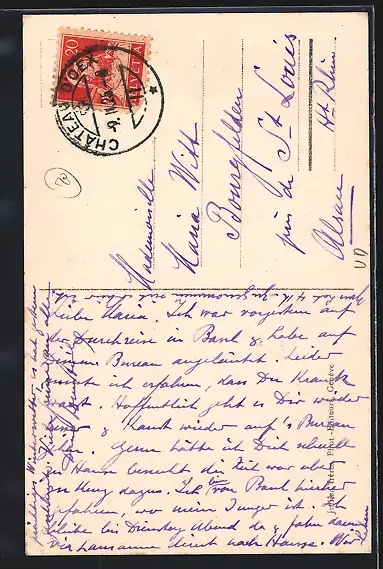 20
HELVETIA
CHÂTEAU D'OEX
-9.II.26
Mademoiselle
Maria Witt
Bourgfelden
près de St Louis
Ht Rhin
Alsace
Jullien frères, Phot.-Editeurs, Genève
Liebe Maria. Ich war vorgestern auf
der Durchreise in Basel & habe auf
Deinem Bureau angeläutet. Leider
musst ich erfahren, dass Du krank
warst. Hoffentlich geht es Dir wieder
gut & kannst wieder auf's Bureau
gehen. Gerne hätte ich Dich schnell
zu Hause besucht die Zeit war aber
zu kurz dazu. Ich bin von Basel hierher
gefahren, wo mein Junge ist. Ich
bleibe bis Dienstag Abend da & fahre dann
via Lausanne direkt nach Hause. Wir haben